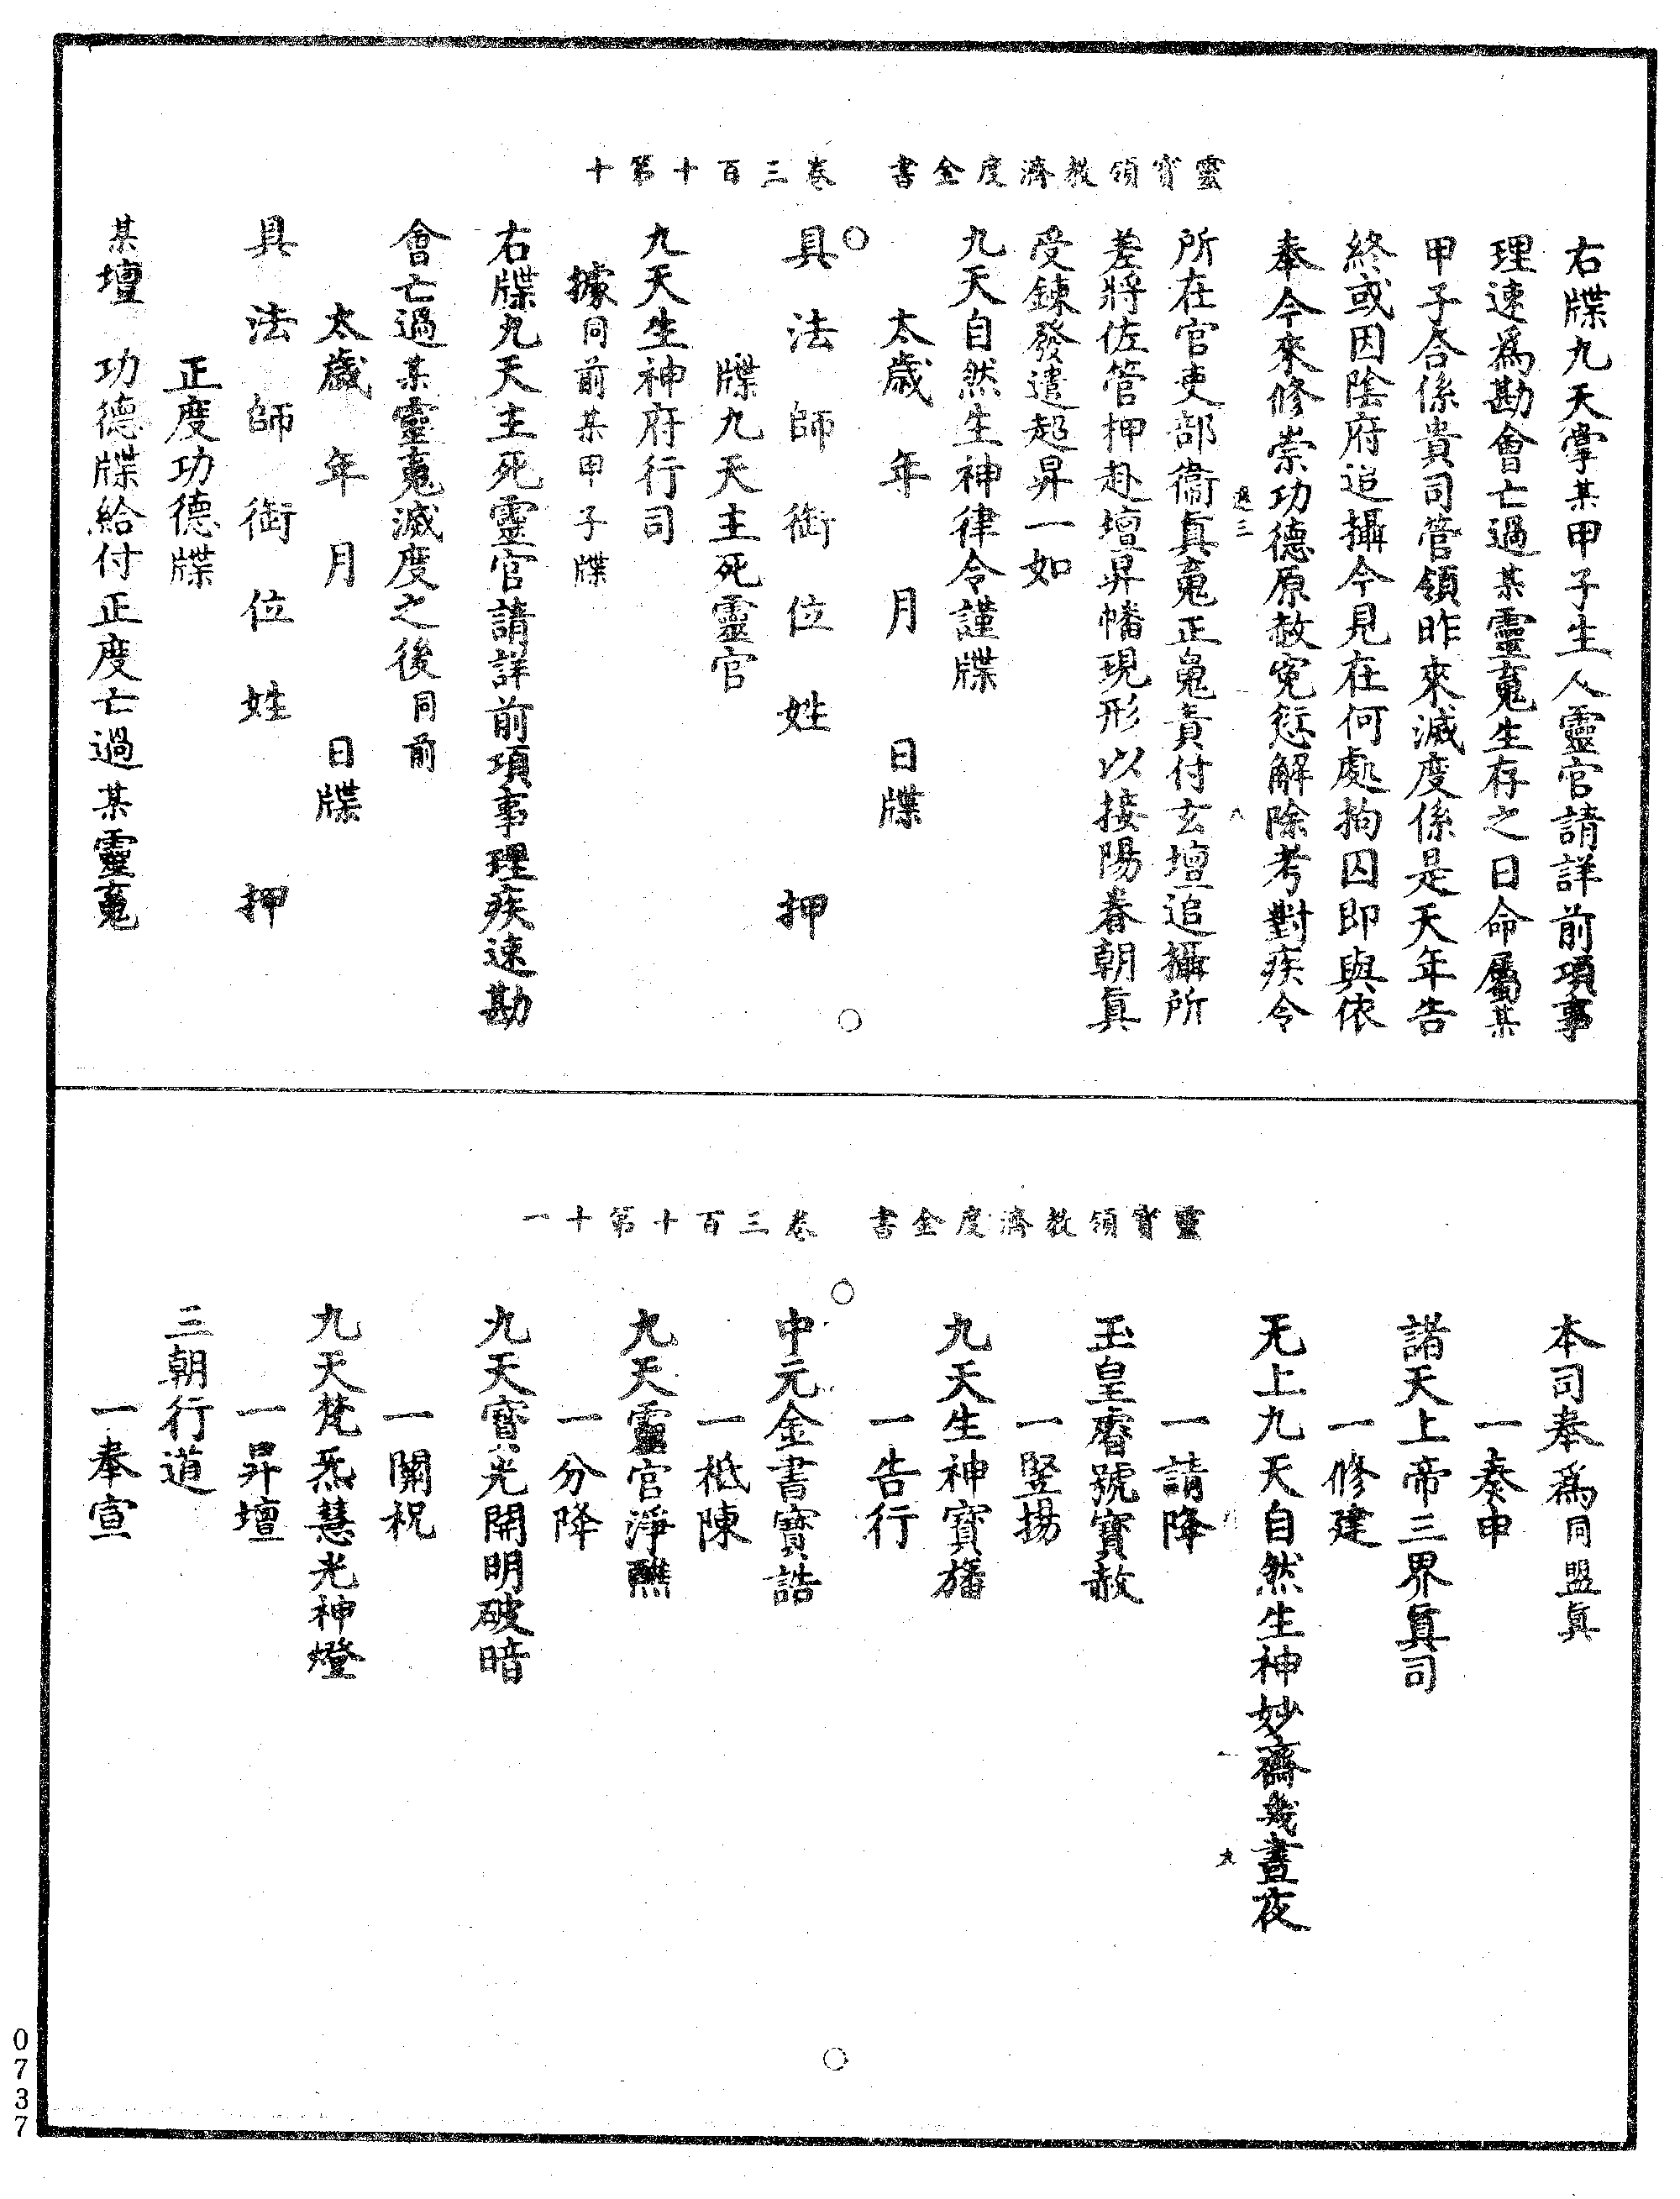 靈寶領教濟度金書　卷三百十第十
右牒九天掌某甲子生人靈官請詳前項事
理速爲勘會亡過某靈魂生存之日命屬某
甲子合係貴司管領昨來滅度係是天年告
終或因陰府追攝今見在何處拘囚即與依
奉今來修崇功德原赦冤愆解除考對疾令
所在官吏部衛眞魂正魄責付玄壇追攝所
差將佐管押赴壇昇幡現形以接陽春朝眞
受鍊發遣超昇一如
九天自然生神律令謹牒
太歲　年　月　日牒
具法師銜位姓　押
牒九天主死靈官
九天生神府行司
據同前某甲子牒
右牒九天主死靈官請詳前項事理疾速勘
會亡過某靈魂滅度之後同前
太歲　年　月　日牒
具法師銜位姓　押
正度功德牒
某壇　功德牒給付正度亡過某靈魂
靈寶領教濟度金書　卷三百十第十一
本司奉爲同盟眞
一奏申
諸天上帝三界眞司
一修建
无上九天自然生神妙齋幾晝夜
一請降
玉皇睿號寶赦
一豎揚
九天生神寶旛
一告行
中元金書寶誥
一柢陳
九天靈官淨醮
一分降
九天寶光開明破暗
一關祝
九天梵炁慧光神燈
一昇壇
三朝行道
一奉宣
0737